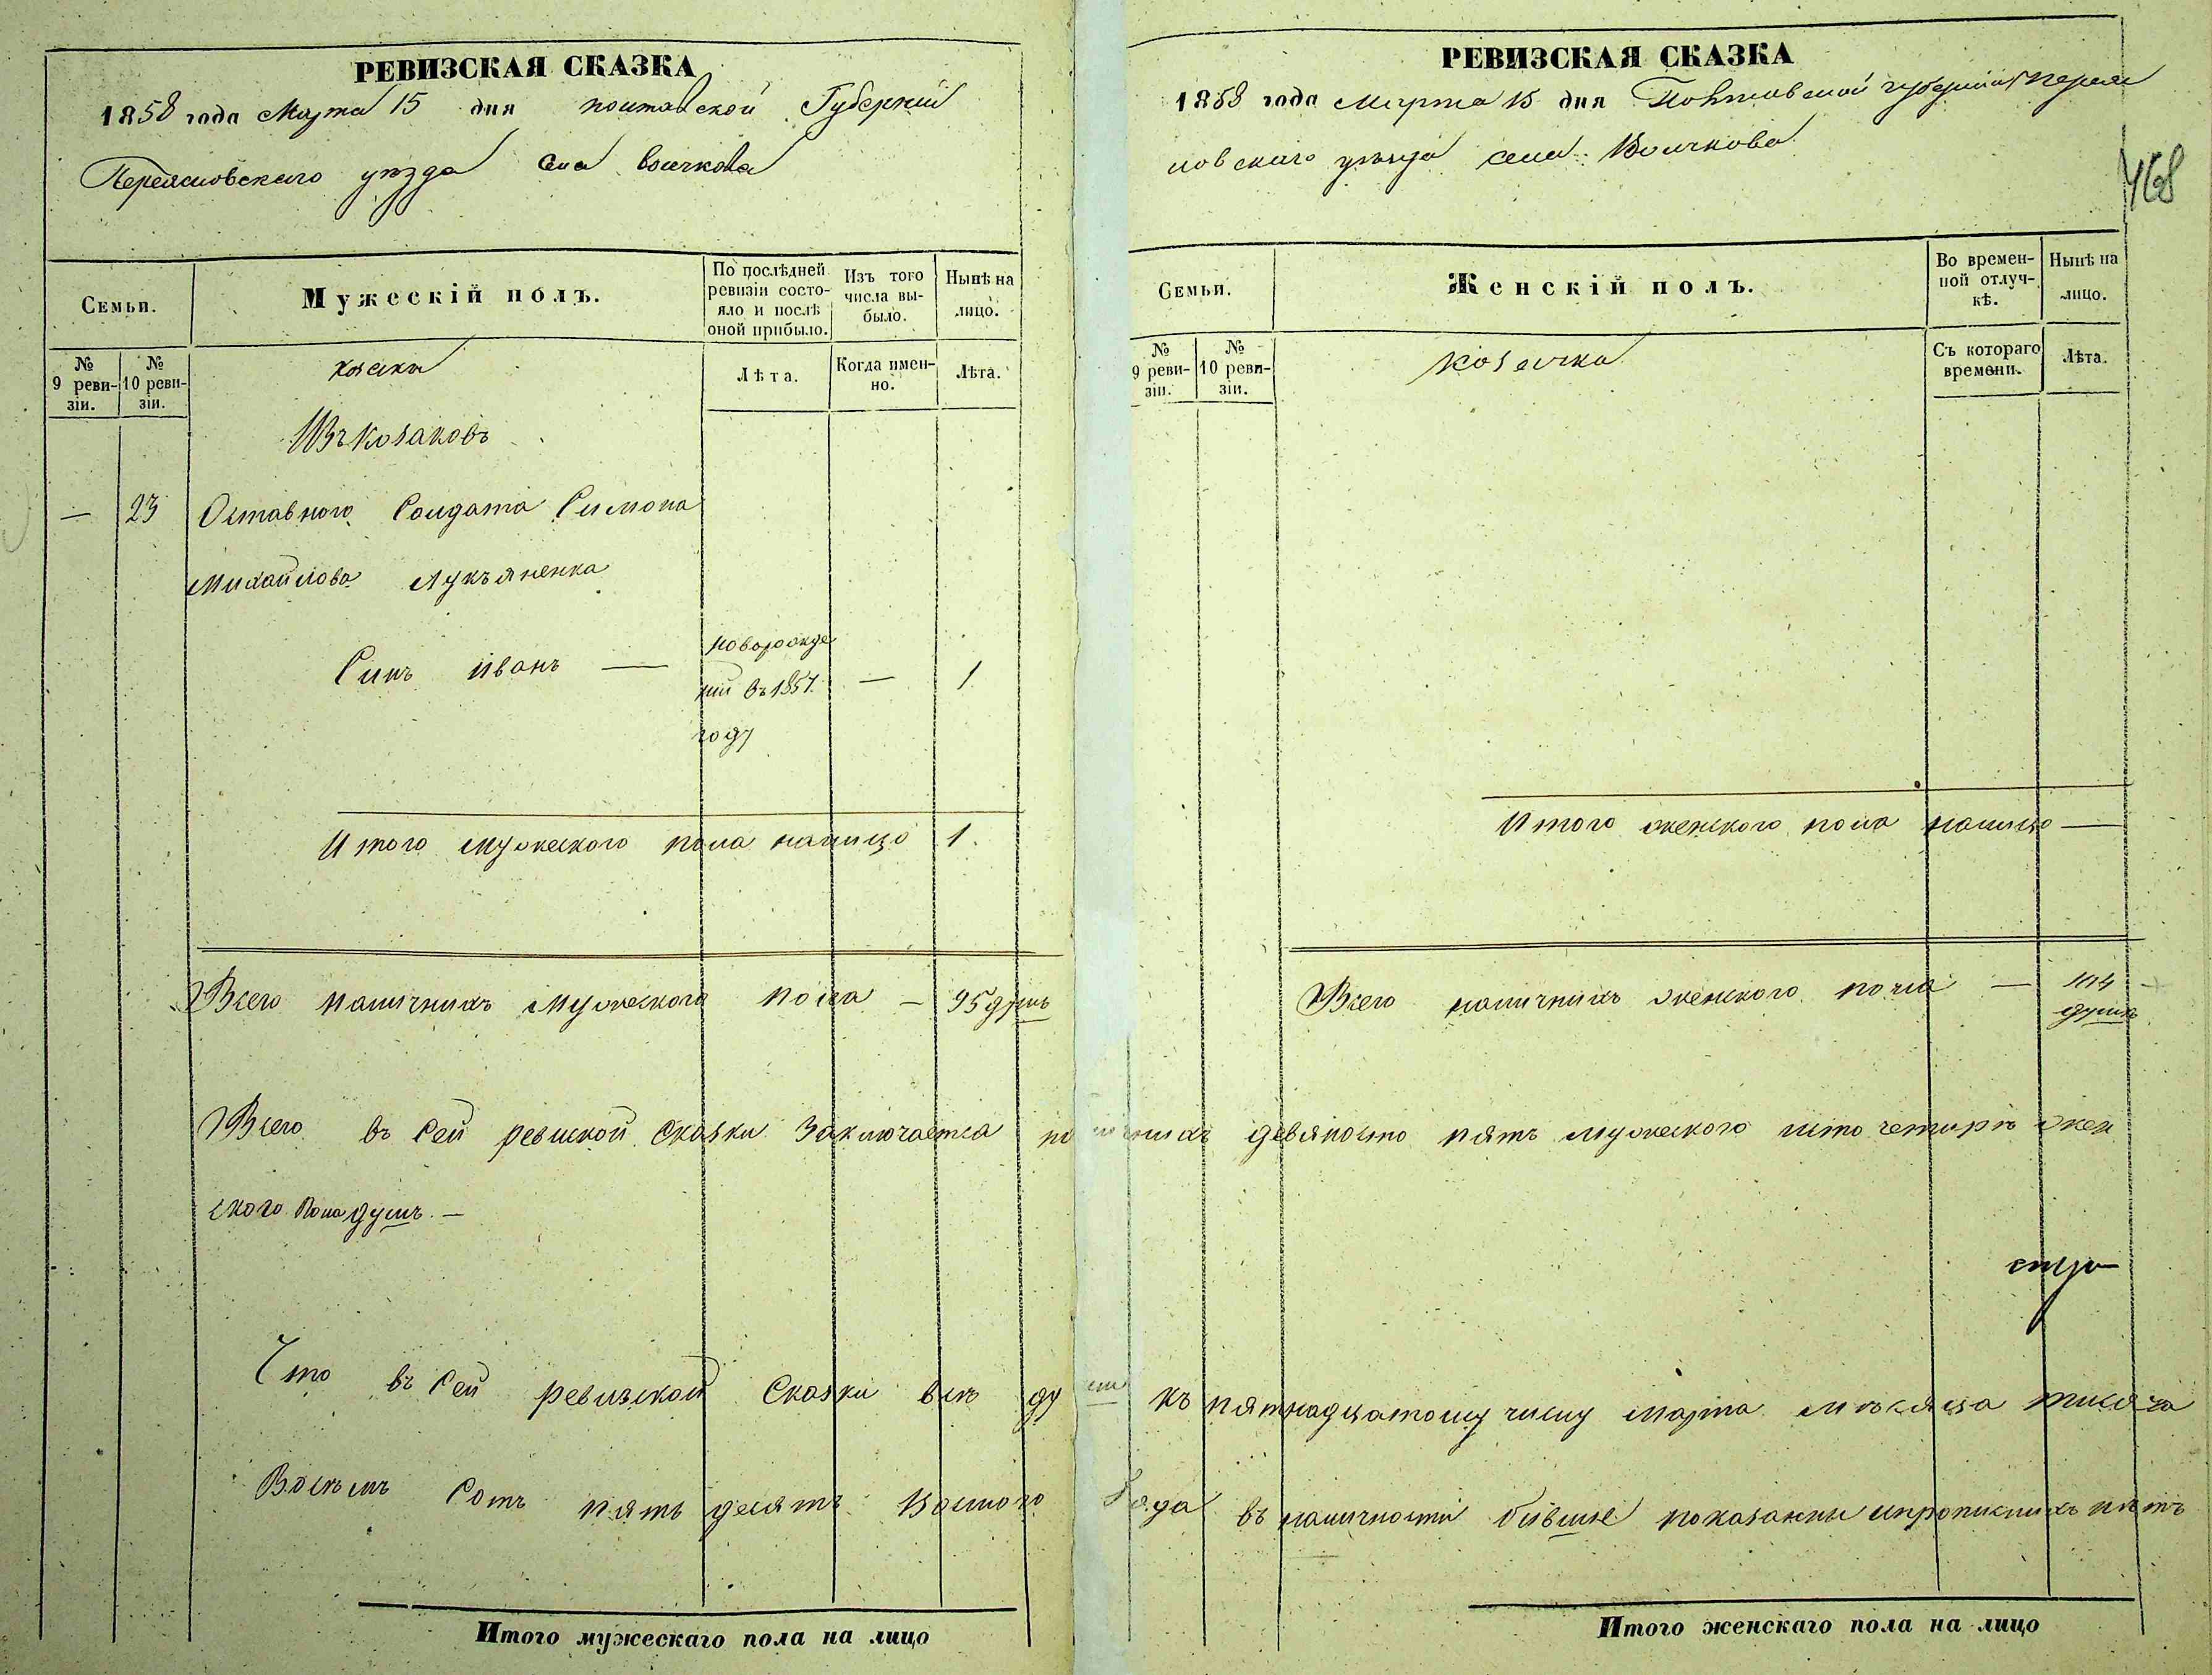 РЕВИЗСКАЯ СКАЗКА
1858 года Марта 15 дня полтавской Губернии
Переясловского уѣзда села Волчкова
Семьи.
Мужескій полъ.
По послѣдней ревизіи состо-
яло и послѣ
оной прибыло.
Изъ того
числа вы-
было.
Нынѣ на
лицо.
№
9 реви-
зіи.
№
10 реви-
зіи.
козаки
Лѣта.
Когда имен-
но.
Лѣта.
Изъ Козаковъ
— 23 Оставного Солдата Симона
Михайлова Лукъяненка
Синъ Иванъ — новорожде
ний въ 1857 — 1
году
Итого мужеского пола налицо 1.
Всего наличнихъ мужеского пола — 95 душъ
РЕВИЗСКАЯ СКАЗКА
1858 года Марта 15 дня Полтавской губернии Перея
ловскаго уѣзда села Волчкова
468
Семьи.
Женскій полъ.
Во времен-
ной отлуч-
кѣ.
Нынѣ на
лицо.
№
9 реви-
зіи.
№
10 реви-
зіи.
козачка
Съ котораго
времени.
Лѣта.
Итого женского пола налицо —
Всего наличнихъ женского пола — 104
душъ
Всего въ сей ревиской сказки Заключается наличнихъ девяносто пять мужеского исто четирѣ жен
ского пола душъ. —
Что въ сей ревизской Сказки всѣ души къ пятнадцатому числу марта мѣсяца тисяча
Восъмъ Сотъ пять десятъ Восмого Года въ наличности бившие показанни ипрописнихъ нѣтъ
Итого мужескаго пола на лицо
Итого женскаго пола на лицо